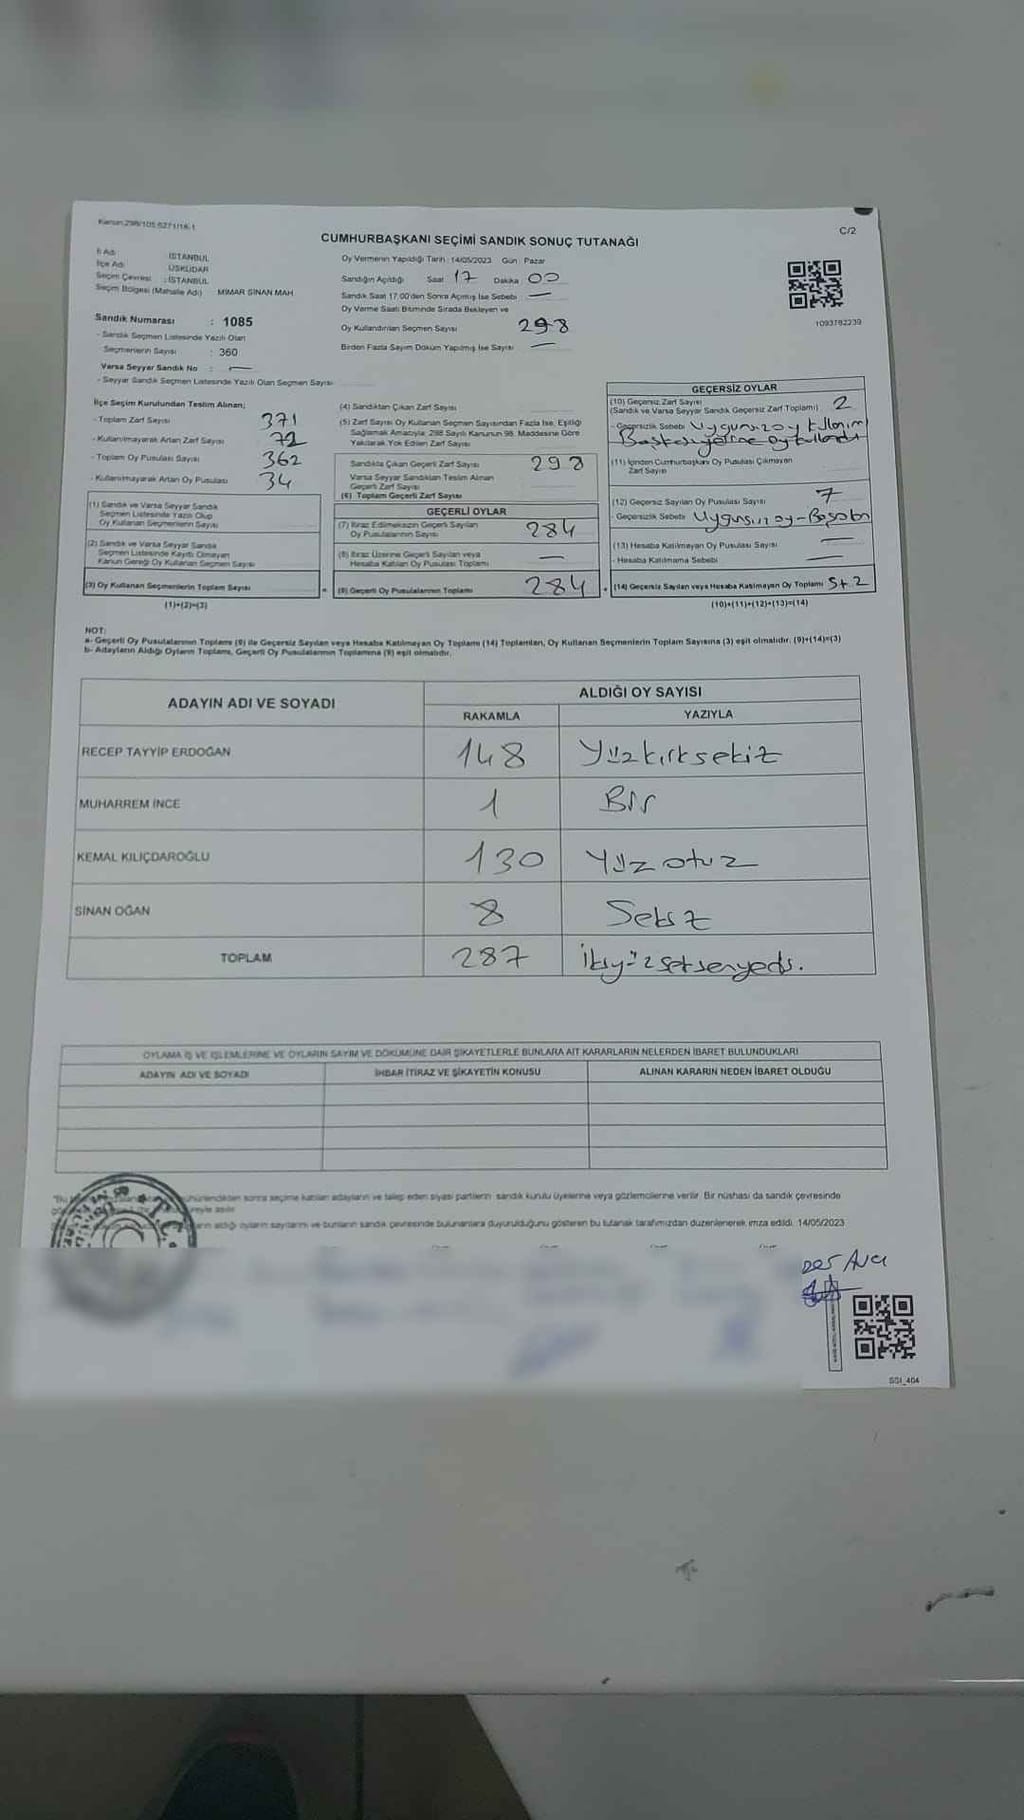 Kanun:298/105 6271/16-1
C/2
CUMHURBAŞKANI SEÇİMİ SANDIK SONUÇ TUTANAĞI
İl Adı : İSTANBUL
İlçe Adı : ÜSKÜDAR
Seçim Çevresi : İSTANBUL
Seçim Bölgesi (Mahalle Adı) MİMAR SİNAN MAH
Sandık Numarası : 1085
- Sandık Seçmen Listesinde Yazılı Olan
Seçmenlerin Sayısı : 360
Varsa Seyyar Sandık No : —
- Seyyar Sandık Seçmen Listesinde Yazılı Olan Seçmen Sayısı
Oy Vermenin Yapıldığı Tarih : 14/05/2023 Gün : Pazar
Sandığın Açıldığı Saat 17 Dakika 00
Sandık Saat 17.00'den Sonra Açılmış İse Sebebi —
Oy Verme Saati Bitiminde Sırada Bekleyen ve
Oy Kullandırılan Seçmen Sayısı 298
Birden Fazla Sayım Döküm Yapılmış İse Sayısı —
1093782239
İlçe Seçim Kurulundan Teslim Alınan;
- Toplam Zarf Sayısı 371
- Kullanılmayarak Artan Zarf Sayısı 72
- Toplam Oy Pusulası Sayısı 362
- Kullanılmayarak Artan Oy Pusulası 34
(1) Sandık ve Varsa Seyyar Sandık
Seçmen Listesinde Yazılı Olup
Oy Kullanan Seçmenlerin Sayısı
(2) Sandık ve Varsa Seyyar Sandık
Seçmen Listesinde Kayıtlı Olmayan
Kanun Gereği Oy Kullanan Seçmen Sayısı
(3) Oy Kullanan Seçmenlerin Toplam Sayısı
(1)+(2)=(3)
(4) Sandıktan Çıkan Zarf Sayısı
(5) Zarf Sayısı Oy Kullanan Seçmen Sayısından Fazla İse, Eşitliği
Sağlamak Amacıyla 298 Sayılı Kanunun 98. Maddesine Göre
Yakılarak Yok Edilen Zarf Sayısı
Sandıkta Çıkan Geçerli Zarf Sayısı 298
Varsa Seyyar Sandıktan Teslim Alınan
Geçerli Zarf Sayısı
(6) Toplam Geçerli Zarf Sayısı
GEÇERLİ OYLAR
(7) İtiraz Edilmeksizin Geçerli Sayılan
Oy Pusulalarının Sayısı 284
(8) İtiraz Üzerine Geçerli Sayılan veya
Hesaba Katılan Oy Pusulası Toplamı —
(9) Geçerli Oy Pusulalarının Toplamı 284
GEÇERSİZ OYLAR
(10) Geçersiz Zarf Sayısı
(Sandık ve Varsa Seyyar Sandık Geçersiz Zarf Toplamı) 2
- Geçersizlik Sebebi Uygunsız oy
(11) İçinden Cumhurbaşkanı Oy Pusulası Çıkmayan
Zarf Sayısı
(12) Geçersiz Sayılan Oy Pusulası Sayısı 7
- Geçersizlik Sebebi Uygunsız oy -
(13) Hesaba Katılmayan Oy Pusulası Sayısı —
- Hesaba Katılmama Sebebi —
(14) Geçersiz Sayılan veya Hesaba Katılmayan Oy Toplamı 5+2
(10)+(11)+(12)+(13)=(14)
NOT:
a- Geçerli Oy Pusulalarının Toplamı (9) ile Geçersiz Sayılan veya Hesaba Katılmayan Oy Toplamı (14) Toplamları, Oy Kullanan Seçmenlerin Toplam Sayısına (3) eşit olmalıdır. (9)+(14)=(3)
b- Adayların Aldığı Oyların Toplamı, Geçerli Oy Pusulalarının Toplamına (9) eşit olmalıdır.
ADAYIN ADI VE SOYADI ALDIĞI OY SAYISI
RAKAMLA YAZIYLA
RECEP TAYYİP ERDOĞAN 148 Yüzkırksekiz
MUHARREM İNCE 1 Bir
KEMAL KILIÇDAROĞLU 130 Yüz otuz
SİNAN OĞAN 8 Sekiz
TOPLAM 287 İkiyüzseksenyedi.
OYLAMA İŞ VE İŞLEMLERİNE VE OYLARIN SAYIM VE DÖKÜMÜNE DAİR ŞİKAYETLERLE BUNLARA AİT KARARLARIN NELERDEN İBARET BULUNDUKLARI
ADAYIN ADI VE SOYADI İHBAR İTİRAZ VE ŞİKAYETİN KONUSU ALINAN KARARIN NEDEN İBARET OLDUĞU
sonra seçime katılan adayların ve talep eden siyasi partilerin sandık kurulu üyelerine veya gözlemcilerine verilir. Bir nüshası da sandık çevresinde
aldığı oyların sayılarını ve bunların sandık çevresinde bulunanlara duyurulduğunu gösteren bu tutanak tarafımızdan düzenlenerek imza edildi. 14/05/2023
T.C.
SGI_404